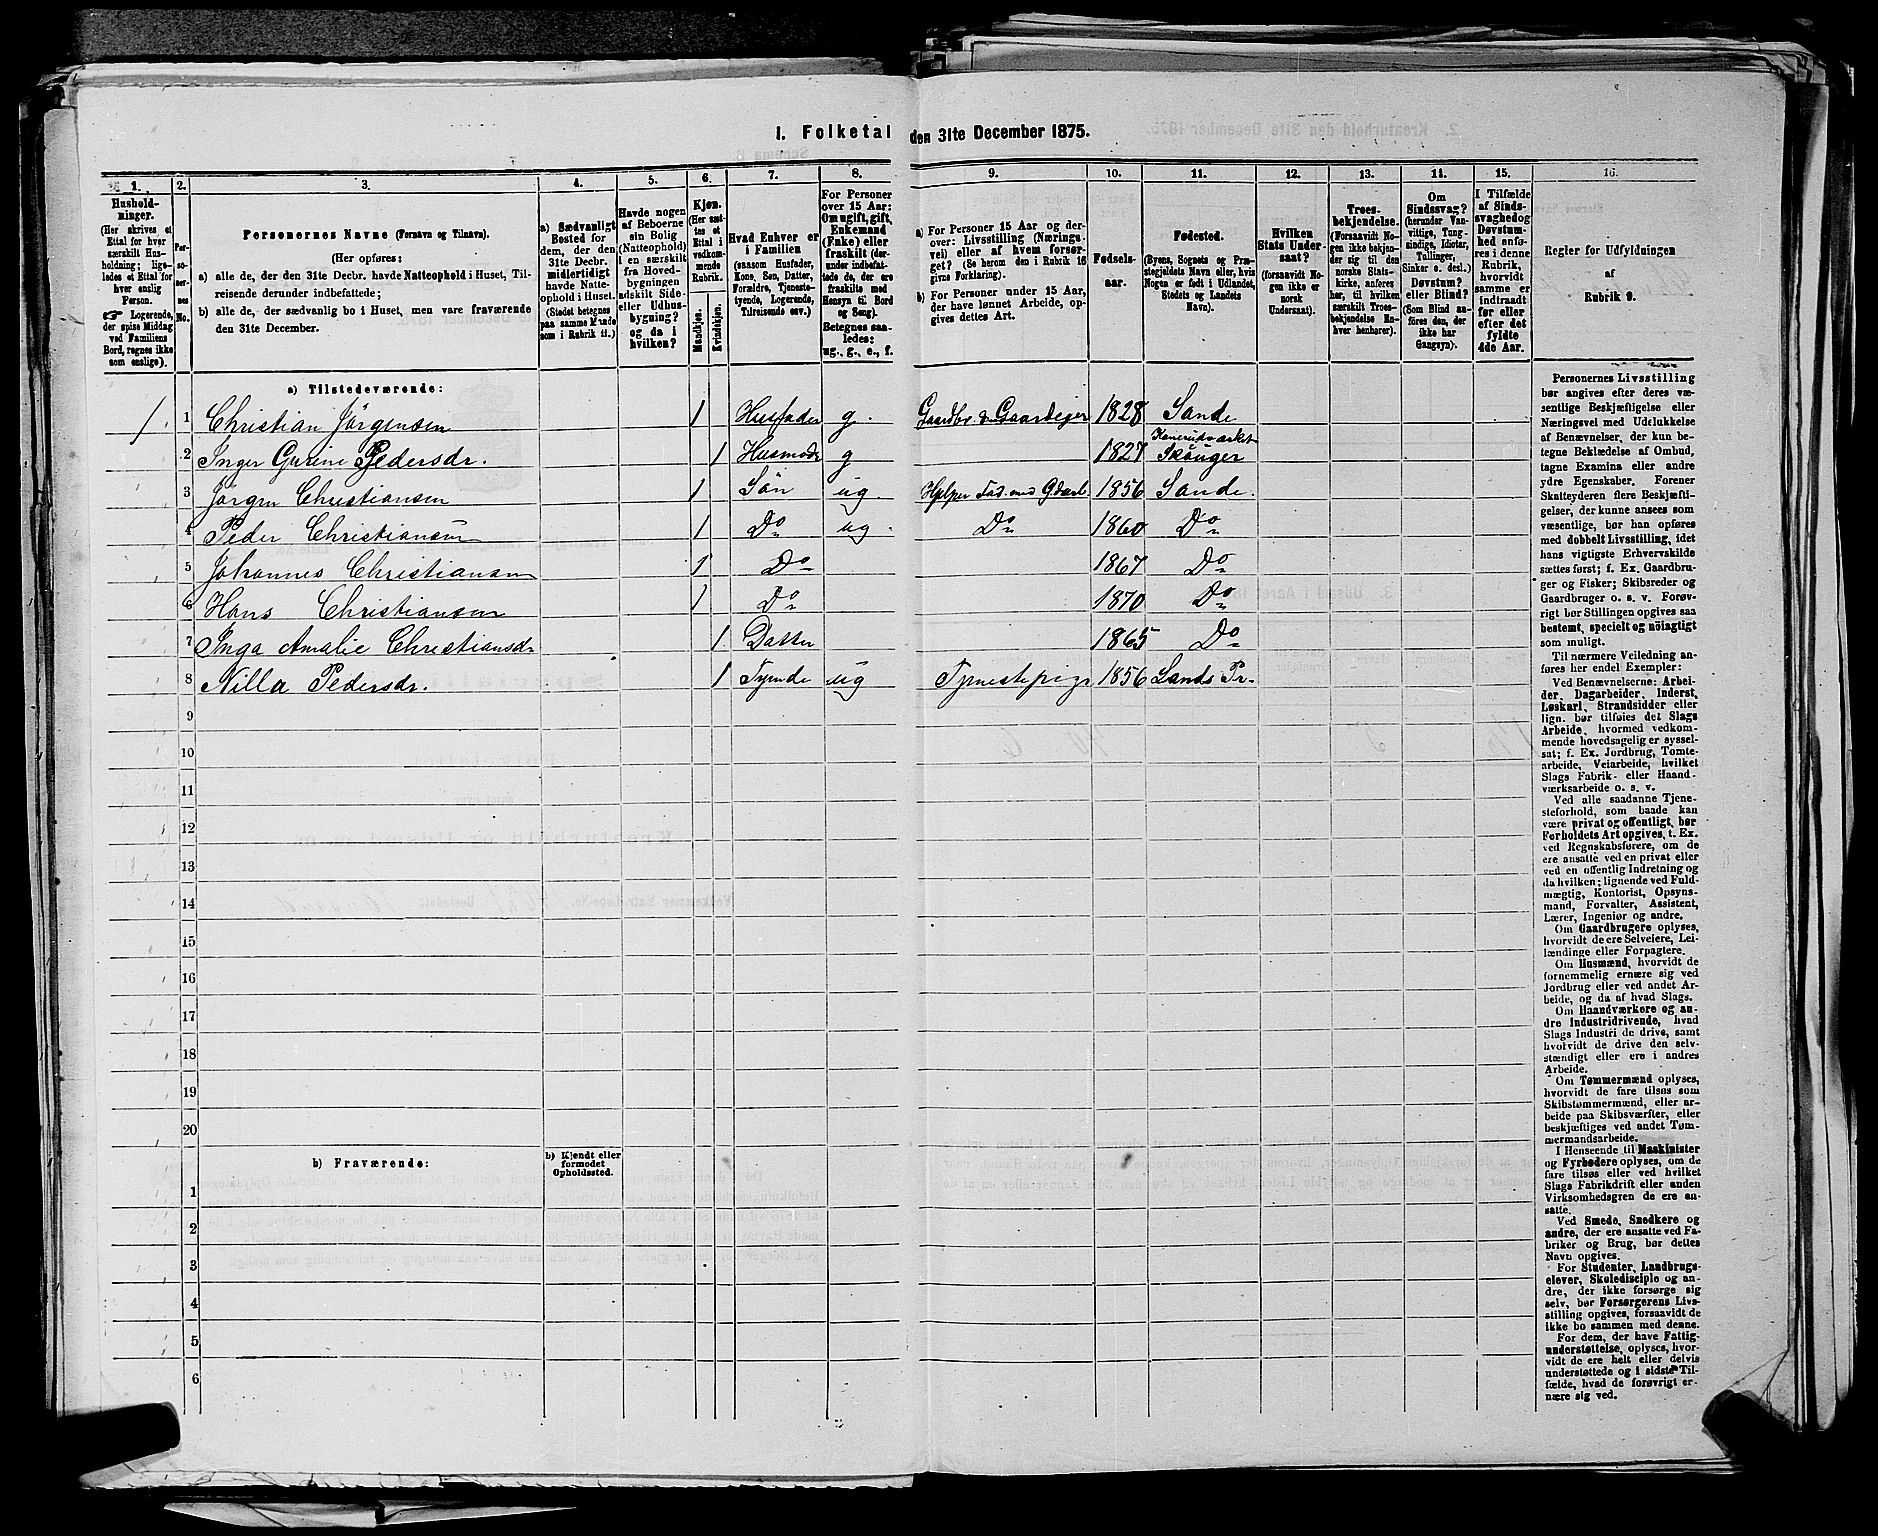 1. Folketal den 31te December 1875.
1. 2. 3. 4. 5. 6. 7. 8. 9. 10. 11. 12. 13. 14. 15. 16.
Hushold-
ninger.
(Her skrives et
Ettal for hver
særskilt Hus-
holdning; lige-
ledes et Ettal for
hver enslig
Person.
☞ Logerende,
der spise Middag
ved Familiens
Bord, regnes ikke
som enslige).
Per-
so-
ner-
nes
No.
Personernes Navne (Fornavn og Tilnavn).
(Her opføres:
a) alle de, der den 31te Decbr. havde Natteophold i Huset, Til-
reisende derunder indbefattede;
b) alle de, der sædvanlig bo i Huset, men vare fraværende
den 31te December.
a) Sædvanligt
Bosted for
dem, der den
31te Decbr.
midlertidigt
havde Natte-
ophold i Huset.
(Stedet betegnes
paa samme Maade
som i Rubrik 11.)
Havde nogen
af Beboerne
sin Bolig
(Natteophold)
i en særskilt
fra Hoved-
bygningen
adskilt Side-
eller Udhus-
bygning?
og da i
hvilken?
Kjøn.
(Her sæt-
tes et
Ettal i
vedkom-
mende
Rubrik.
Mandkjøn.
Kvindekjøn.
Hvad Enhver er
i Familien
(saasom Husfader,
Kone, Søn, Datter,
Forældre, Tjeneste-
tyende, Logerende,
Tilreisende osv.)
For Personer
over 15 Aar:
Om ugift, gift,
Enkemand
(Enke) eller
fraskilt (der-
under indbefat-
tede de, der ere
fraskilte med
Hensyn til Bord
og Seng).
Betegnes saa-
ledes:
ug., g., e., f.
a) For Personer 15 Aar og der-
over: Livsstilling (Nærings-
vei) eller af hvem forsør-
get? (Se herom den i Rubrik 16
givne Forklaring).
b) For Personer under 15 Aar,
der have lønnet Arbeide, op-
gives dettes Art.
Fødsels-
aar.
Fødested.
(Byens, Sognets og Præ-
stegjeldets Navn eller, hvis
Nogen er født i Udlandet,
Stedets og Landets
Navn).
Hvilken
Stats Under-
saat?
(forsaavidt No-
gen ikke er
norsk
Undersaat).
Troes-
bekjendelse.
(Forsaavidt No-
gen ikke bekjen-
der sig til den
norske Stats-
kirke, anføres
her, til hvilken
særskilt Troes-
bekjendelse En-
hver henhører).
Om
Sindssvag?
(herunder Van-
vittige, Tung-
sindige, Idioter,
Tullinger,
Sinker o. desl.)
Døvstum?
eller Blind?
(Som Blind an-
føres den, der
ikke har
Gangsyn).
I Tilfælde
af Sinds-
svaghed og
Døvstum-
hed anfø-
res i denne
Rubrik,
hvorvidt
samme er
indtraadt
før eller
efter det
fyldte
4de Aar.
Regler for Udfyldningen
af
Rubrik 9.
a) Tilstedeværende:
1 1 Christian Jörgensen 1 Husfader g. Gaardbr. & Gaardejer 1828 Sande
2 Inger Gurine Pedersdr. 1 Husmodr g 1827 Skouger
3 Jörgen Christiansen 1 Sön ug. Hjelper Fad. med Gdarb. 1856 Sande.
4 Peder Christiansen 1 Do ug. Do 1860 Do
5 Johannes Christiansen 1 Do 1867 Do
6 Hans Christiansen 1 Do 1870 Do
7 Inga Amalie Christiansdr 1. Datter 1865 Do
8 Nilla Pedersdr. 1 Tyende ug Tjenestepige 1856 Lands Pr.
9
10
11
12
13
14
15
16
17
18
19
20
b) Fraværende:
b) Kjendt eller
formodet
Opholdssted.
1
2
3
4
5
6
Personernes Livsstilling
bør angives efter deres væ-
sentlige Beskjæftigelse eller
Næringsvei med Udelukkelse
af Benævnelser, der kun be-
tegne Beklædelse af Ombud,
tagne Examina eller andre
ydre Egenskaber. Forener
Skatteyderen flere Beskjæfti-
gelser, der kunne ansees som
væsentlige, bør han opføres
med dobbelt Livsstilling, idet
hans vigtigste Erhvervskilde
sættes først; f. Ex. Gaardbru-
ger og Fisker; Skibsreder og
Gaardbruger o. s. v. Forøv-
rigt bør Stillingen opgives saa
bestemt, specielt og nöiagtigt
som muligt.
Til nærmere Veiledning an-
føres her endel Exempler:
Ved Benævnelserne: Arbei-
der, Dagarbeider, Inderst,
Løskarl, Strandsidder eller
lign. bør tilføies det Slags
Arbeide, hvormed vedkom-
mende hovedsagelig er syssel-
sat; f. Ex. Jordbrug, Tomte-
arbeide, Veiarbeide, hvilket
Slags Fabrik- eller Haand-
værksarbeide o. s. v.
Ved alle saadanne Tjene-
steforhold, som baade kan
være privat og offentligt, bør
Forholdets Art opgives, t. Ex.
ved Regnskabsførere, om de
ere ansatte ved en privat eller
ved en offentlig Indretning og
da hvilken; lignende ved Fuld-
mægtig, Kontorist, Opsyns-
mand, Forvalter, Assistent,
Lærer, Ingeniør og andre.
Om Gaardbrugere oplyses,
hvorvidt de ere Selveiere, Lei-
lændinge eller Forpagtere.
Om Husmænd, hvorvidt de
fornemmelig ernære sig ved
Jordbrug eller ved andet Ar-
beide, og da af hvad Slags.
Om Haandværkere og an-
dre Industridrivende, hvad
Slags Industri de drive, samt
hvorvidt de drive den selv-
stændigt eller ere i andres
Arbeide.
Om Tømmermænd oplyses,
hvorvidt de fare tilsøs som
Skibstømmermænd, eller ar-
beide paa Skibsværfter, eller
beskjæftiges ved andet Tøm-
mermandsarbeide.
I Henseende til Maskinister
og Fyrbødere oplyses, om de
fare tilsøs eller ved hvilket
Slags Fabrikdrift eller anden
Virksomhedsgren de ere an-
satte.
Ved Smede, Snedkere og
andre, der ere ansatte ved Fa-
briker og Brug, bør dettes
Navn opgives.
For Studenter, Landbrugs-
elever, Skoledisciple og an-
dre, der ikke forsørge sig
selv, bør Forsørgerens Livs-
stilling opgives, forsaavidt de
ikke bo sammen med denne.
For dem, der have Fattig-
understøttelse, oplyses, hvor-
vidt de ere helt eller delvis
understøttede og i sidste Til-
fælde, hvad de forøvrigt er-
nære sig ved.